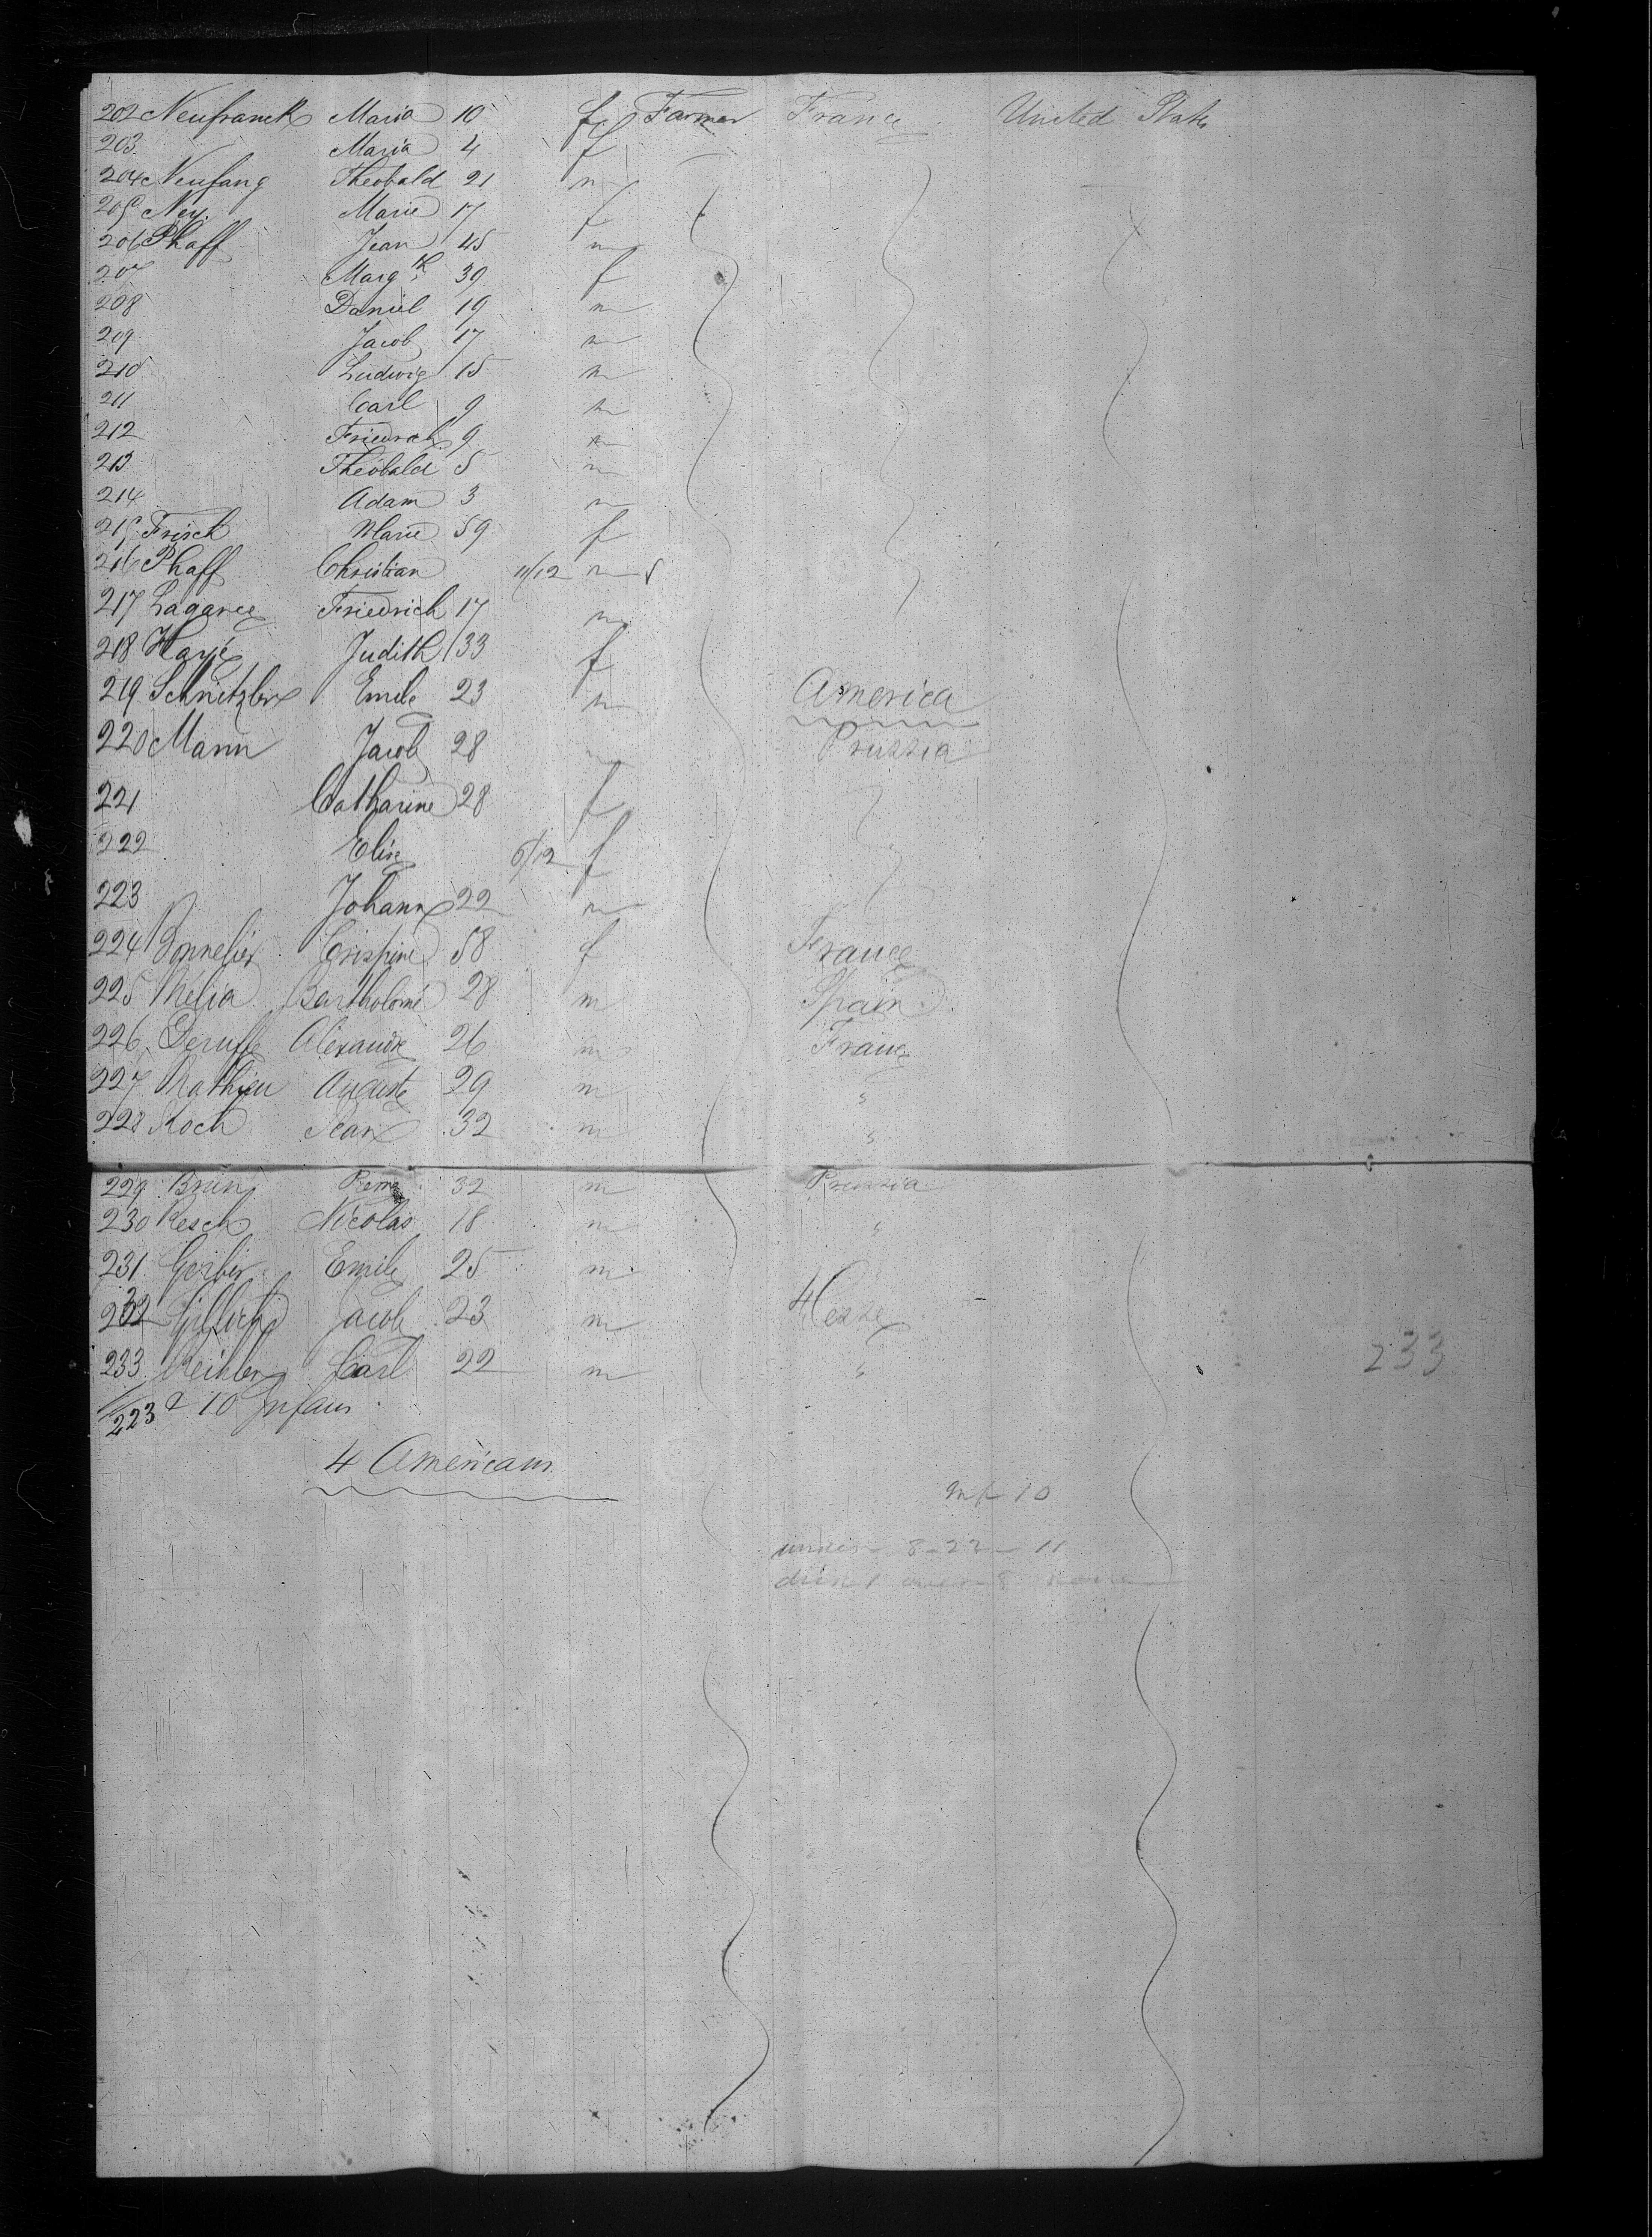 202 Neufranck Maria 10 f Farmer France United States
203 Maria 4 f
204 Neufang Theobald 21 m
205 Ney. Marie 17 f
206 Phaff Jean 45 m
207 Marg th 39 f
208 Daniel 19 m
209 Jacob 17 m
210 Ludwig 15 m
211 Carl 9 m
212 Friedrich 9 m
213 Théobald 5 m
214 Adam 3 m
215 Frisch Marie 59 f
216 Phaff Christian 11/12 m
217 Lagarce Friedrich 17 m
218 Hayé Judith 33 f
219 Schnetzler Emile 23 m America
220 Mann Jacob 28 m Prussia
221 Catharine 28 f
222 Elise 6/12 f
223 Johann 22 m
224 Bonnelier Crispine 58 f France
225 Mélia Bartholomé 28 m Spain
226 Deruffe Alexandre 26 m France
227 Mathieu Auguste 29 m "
228 Koch Jean 32 m "
229 Brun Pierre 32 m Prussia
230 Resch Nicolas 18 m "
231 Gerber Emile 25 m
232 Jacob 23 m Hesse
233 Carl 22 m " 233
223 & 10 Infans
4 Americans
inf 10
under 8 - 22 - 11